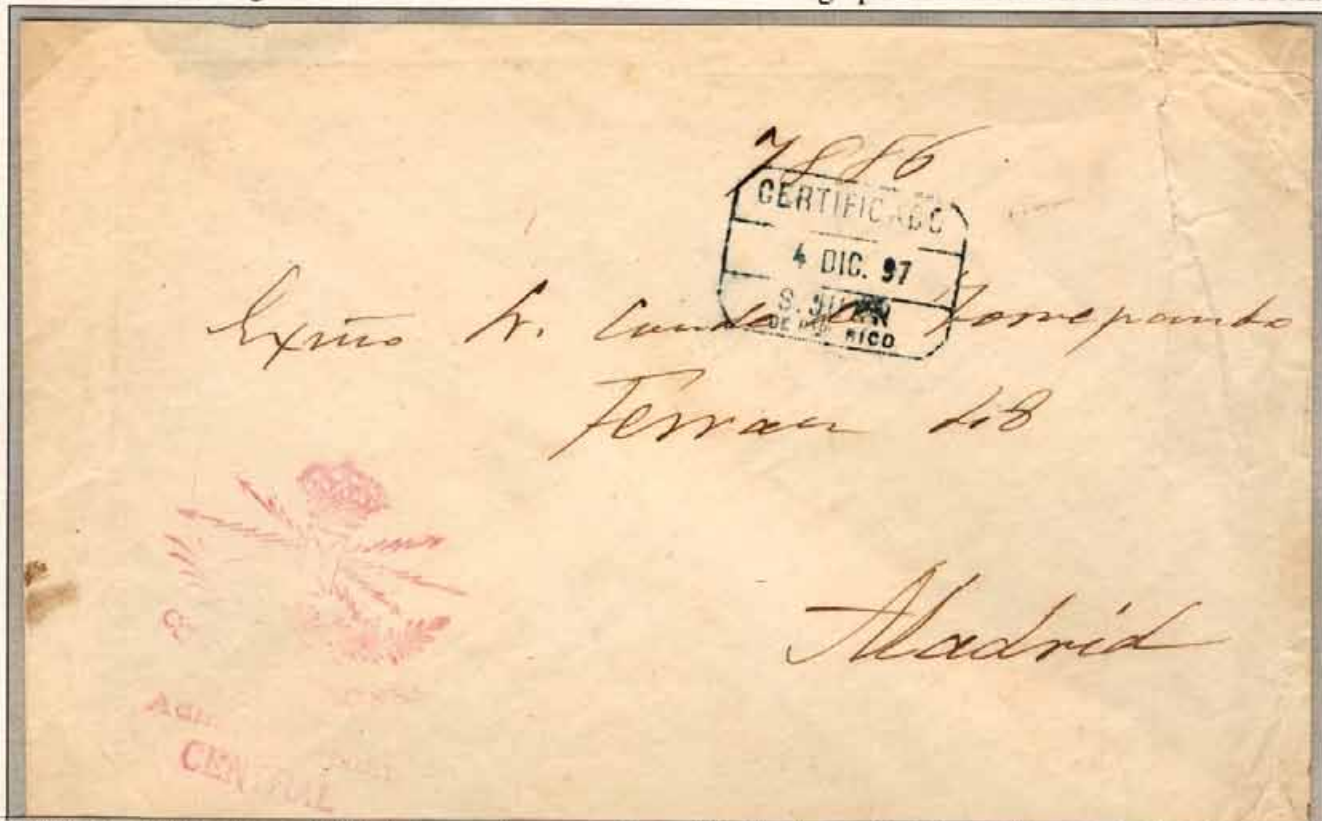 7886
CERTIFICADO
4 DIC. 97
S. JUAN
DE RICO
Exmo Sr. Conde de Torrepando
Ferraz 48
Madrid
CENTRAL